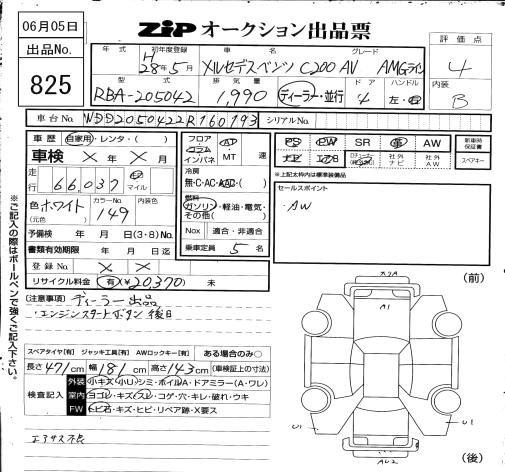 06月05日
出品No.
825
ZiP オークション出品票
年式 初年度登録 車名 グレード
H28年5月 メルセデスベンツ C200AV AMGライン
評価点
4
内装
B
型式 排気量 ドア ハンドル
RBA-205042 1,990 ディーラー・並行 4 左・右
車台No. WDD2050422R160793 シリアルNo.
車歴 自家用・レンタ・( )
車検 × 年 × 月
走行 66,037 キロ マイル
色 ホワイト カラーNo. 149
(元色)
予備検 年 月 日(3・8)No.
書類有効期限 年 月 日迄
登録No. × ×
リサイクル料金 有(¥20,370) 未
フロア コラム インパネ AT MT 速
冷房
無・C・AC・WAC・( )
燃料
ガソリン・軽油・電気・その他( )
Nox 適合・非適合
乗車定員 5 名
PS PW SR 革 AW
ナビ エアB 社外ナビ 社外AW
新車時保証書
スペアキー
*上記太枠内は標準装備品
セールスポイント
・AW
(注意事項) ディーラー出品
・エンジンスタートボタン後日
スペアタイヤ[有] ジャッキ工具[有] AWロックキー[有] ある場合のみ○
長さ 471cm 幅 181cm 高さ 143cm (車検証上の寸法)
検査記入
外装 小キズ・小U・シミ・ホイルA・ドアミラー(A・ワレ)
室内 ヨゴレ・キズ・スレ・コゲ・穴・キレ・破れ・ウキ
FW トビ石・キズ・ヒビ・リペア跡・X要ス
エアサス不良
※ご記入の際はボールペンで強くご記入下さい。
(前)
A1
U1
U1
(後)